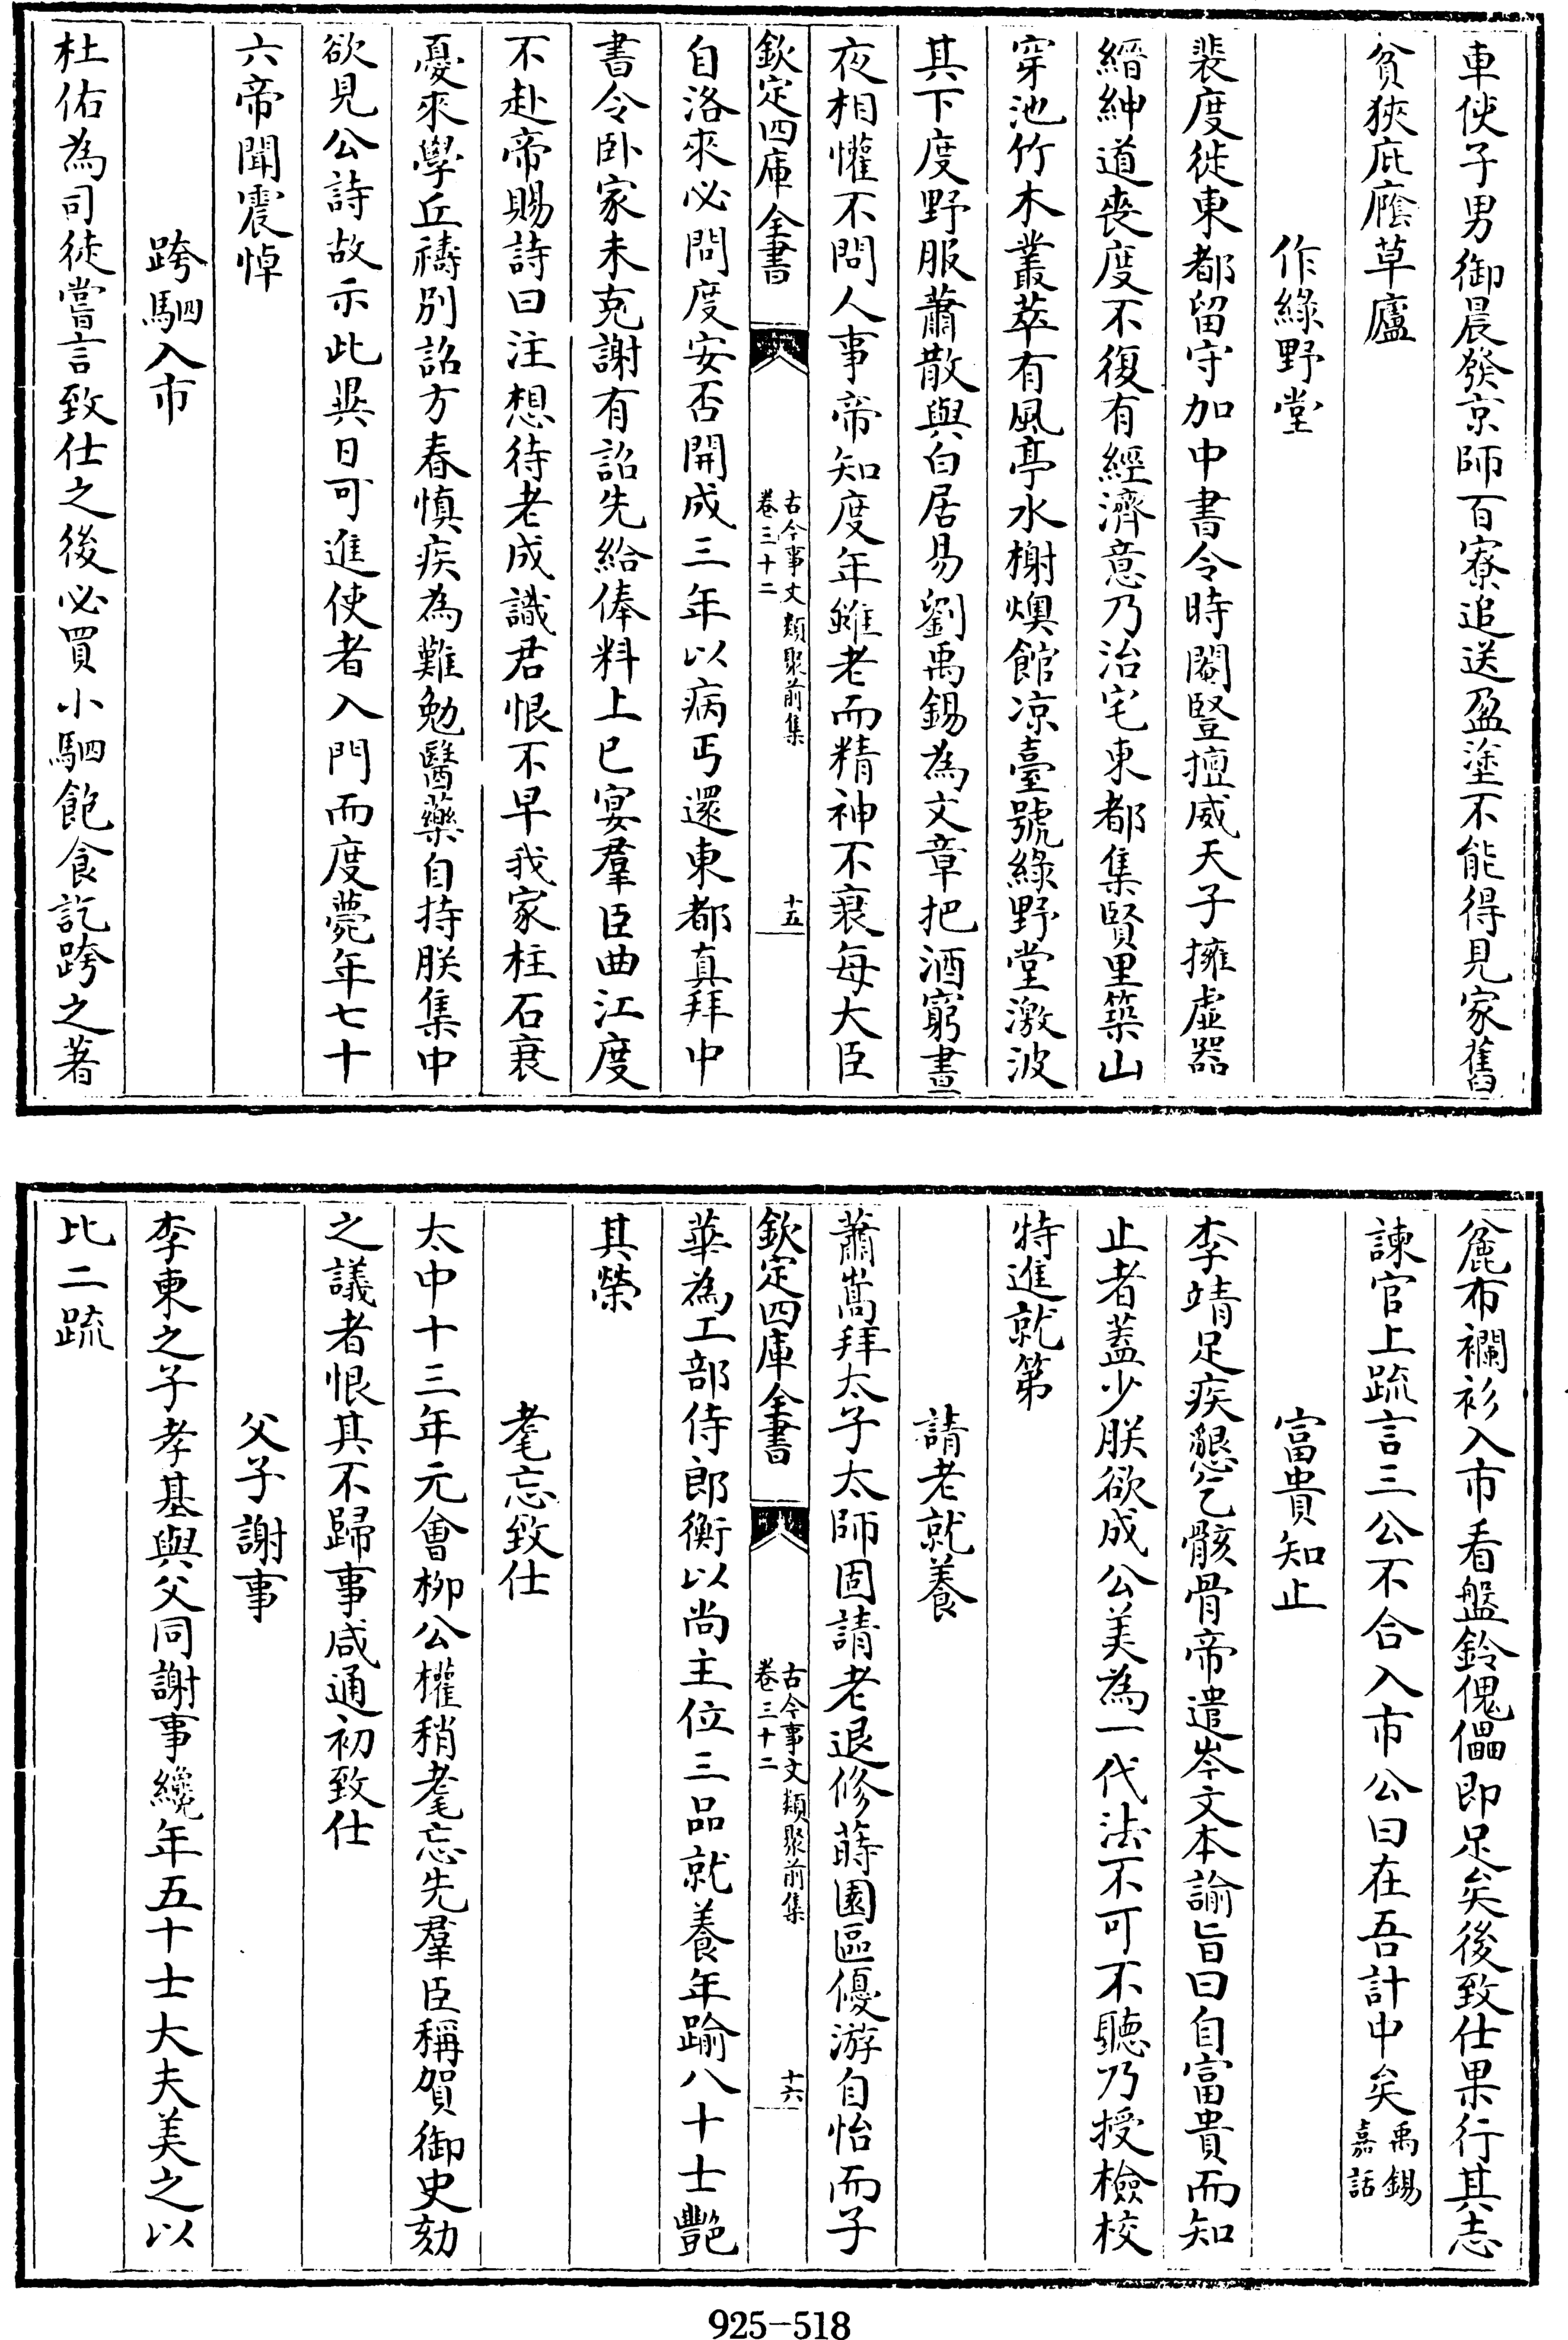 車使子男御晨發京師百寮追送盈塗不能得見家舊
貧狹庇廕草廬
作綠野堂
裴度徙東都留守加中書令時閹豎擅威天子擁虛器
縉紳道喪度不復有經濟意乃治宅東都集賢里築山
穿池竹木叢萃有風亭水榭燠館凉臺號綠野堂激波
其下度野服蕭散與白居易劉禹錫為文章把酒窮晝
夜相懽不問人事帝知度年雖老而精神不衰每大臣
欽定四庫全書
古今事文類聚前集
卷三十二
十五
自洛來必問度安否開成三年以病丐還東都真拜中
書令卧家未克謝有詔先給俸料上巳宴羣臣曲江度
不赴帝賜詩曰注想待老成識君恨不早我家柱石衰
憂來學丘禱別詔方春慎疾為難勉醫藥自持朕集中
欲見公詩故示此異日可進使者入門而度薨年七十
六帝聞震悼
跨駟入市
杜佑為司徒嘗言致仕之後必買小駟飽食訖跨之著
麄布襴衫入市看盤鈴傀儡即足矣後致仕果行其志
諫官上疏言三公不合入市公曰在吾計中矣禹錫
嘉話
富貴知止
李靖足疾懇乞骸骨帝遣岑文本諭旨曰自富貴而知
止者蓋少朕欲成公美為一代法不可不聽乃授檢校
特進就第
請老就養
蕭嵩拜太子太師固請老退修蒔園區優游自怡而子
欽定四庫全書
古今事文類聚前集
卷三十二
十六
華為工部侍郎衡以尚主位三品就養年踰八十士艷
其榮
耄忘致仕
太中十三年元會栁公權稍耄忘先羣臣稱賀御史劾
之議者恨其不歸事咸通初致仕
父子謝事
李東之子孝基與父同謝事纔年五十士大夫美之以
比二疏
925-518